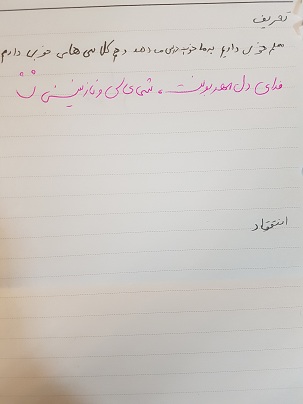 تعریف
معلم خوبی داریم به ما خوب درس می دهد و هم کلاسی های خوبی داریم
فدای دل مهربونت، شما عالی و نازنینی
انتقاد